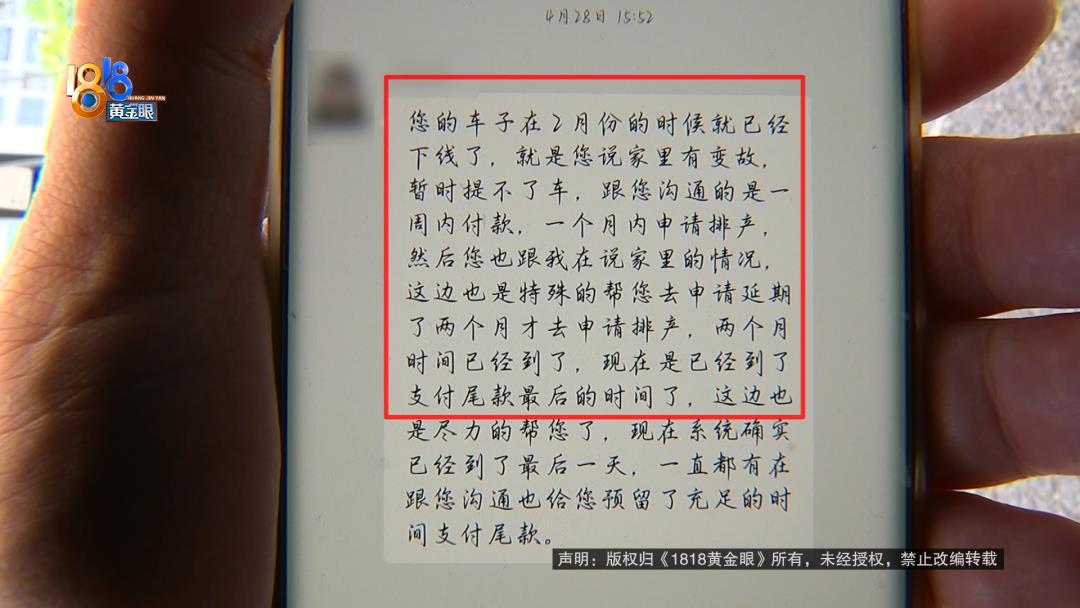 4月28日 15:52
1818
HUANG JIN YAN
黄金眼
您的车子在2月份的时候就已经
下线了，就是您说家里有变故，
暂时提不了车，跟您沟通的是一
周内付款，一个月内申请排产，
然后您也跟我在说家里的情况，
这边也是特殊的帮您去申请延期
了两个月才去申请排产，两个月
时间已经到了，现在是已经到了
支付尾款最后的时间了，这边也
是尽力的帮您了，现在系统确实
已经到了最后一天，一直都有在
跟您沟通也给您预留了充足的时
间支付尾款。
声明：版权归《1818黄金眼》所有，未经授权，禁止改编转载